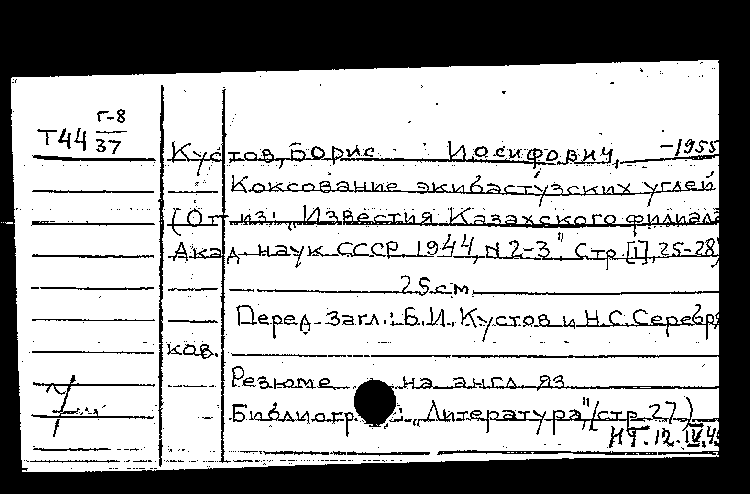 Т44 Г-8
37
Кустов, Борис Иосифович, -1955
Коксование экибастузских углей
(От. из: „Известия Казахского филиала
Акад. наук СССР. 1944, N 2-3" Стр. [1], 25-28)
25 см.
Перед загл.: Б.И. Кустов и Н.С. Серебря
ков.
Резюме на англ. яз.
Библиогр. „Литература", (стр. 27)
НТ. 12.IV.45